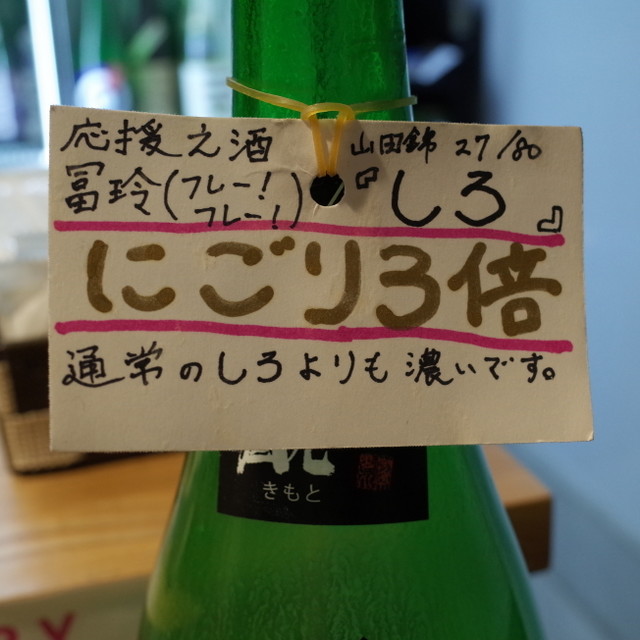 応援え酒 山田錦 27/80
冨玲(フレー!フレー!)『しろ』
にごり3倍
通常のしろよりも濃いです。
きもと